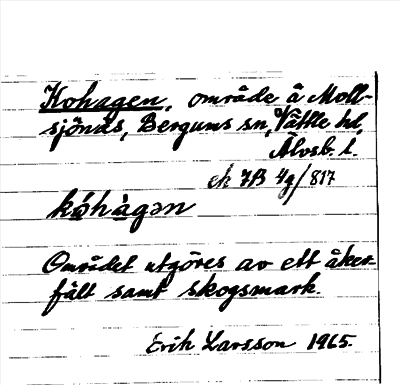 Kohagen, område å Moll-
sjönäs, Bergums sn, Vättle hd,
Älvsb. l.
ek 7B 4g/817
kóhàgən
Området utgöres av ett åker-
fält samt skogsmark.
Erik Larsson 1965.